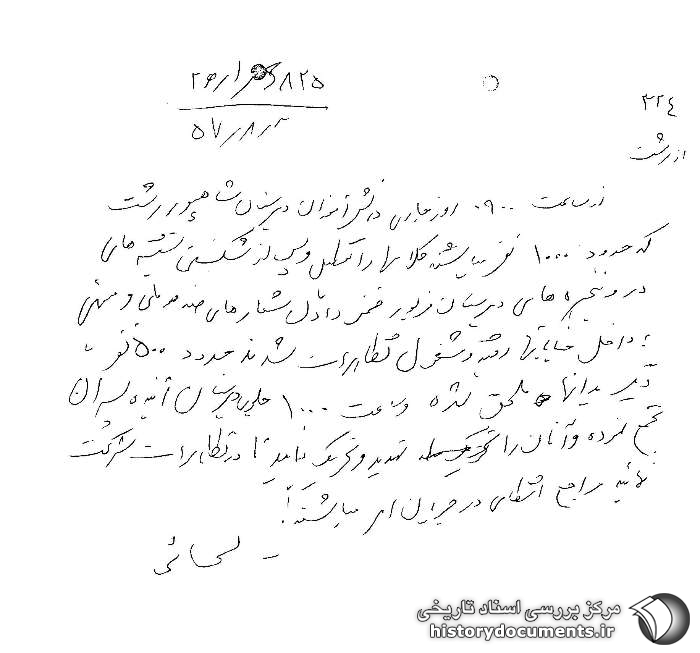 ۳۲٤
۸۲۵
۵۷/۸/۲
از رشت
از ساعت ۰۹۰۰ روز جاری دانش آموزان دبیرستان شاهپور رشت
که حدود ۱۰۰۰ نفر میباشند کلاسها را تعطیل و پس از شکستن شیشه های
در و پنجره های دبیرستان مزبور ضمن دادن شعارهای ضد ملی و میهنی
به داخل خیابانها رفته و مشغول تظاهرات شدند حدود ۵۰۰ نفر
دیگر بدانها ملحق شده و ساعت ۱۰۰۰ جلوی دبیرستان
تجمع نموده و آنان را تهدید و تحریک تا در تظاهرات شرکت
نمایند مراجع انتظامی در جریان امر میباشند
مرکز بررسی اسناد تاریخی
historydocuments.ir